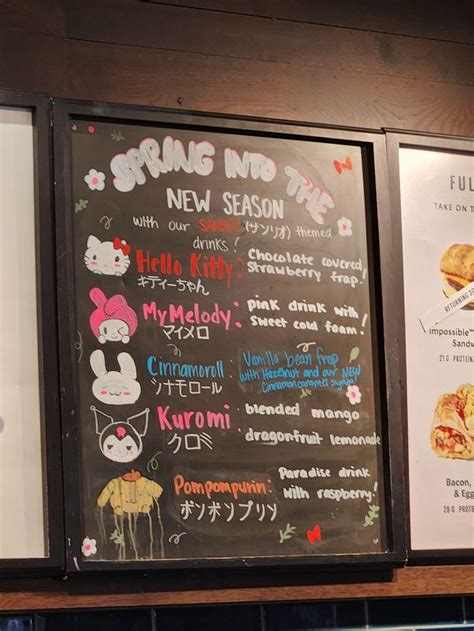 SPRING INTO THE
NEW SEASON
with our SANRIO (サンリオ) themed
drinks!
Hello Kitty: Chocolate covered
キティーちゃん strawberry frap!
MyMelody: pink drink with
マイメロ sweet cold foam!
Cinnamoroll: Vanilla bean frap
シナモロール with Hazelnut and our NEW
Cinnamon caramel syrup!
Kuromi: blended mango
クロミ dragonfruit lemonade
Pompompurin: Paradise drink
ポンポンプリン with raspberry!
FUL
TAKE ON T
RETURNING
Impossible™
Sandw
21 G PROTEIN
Bacon,
& Egg
28 G PROTE